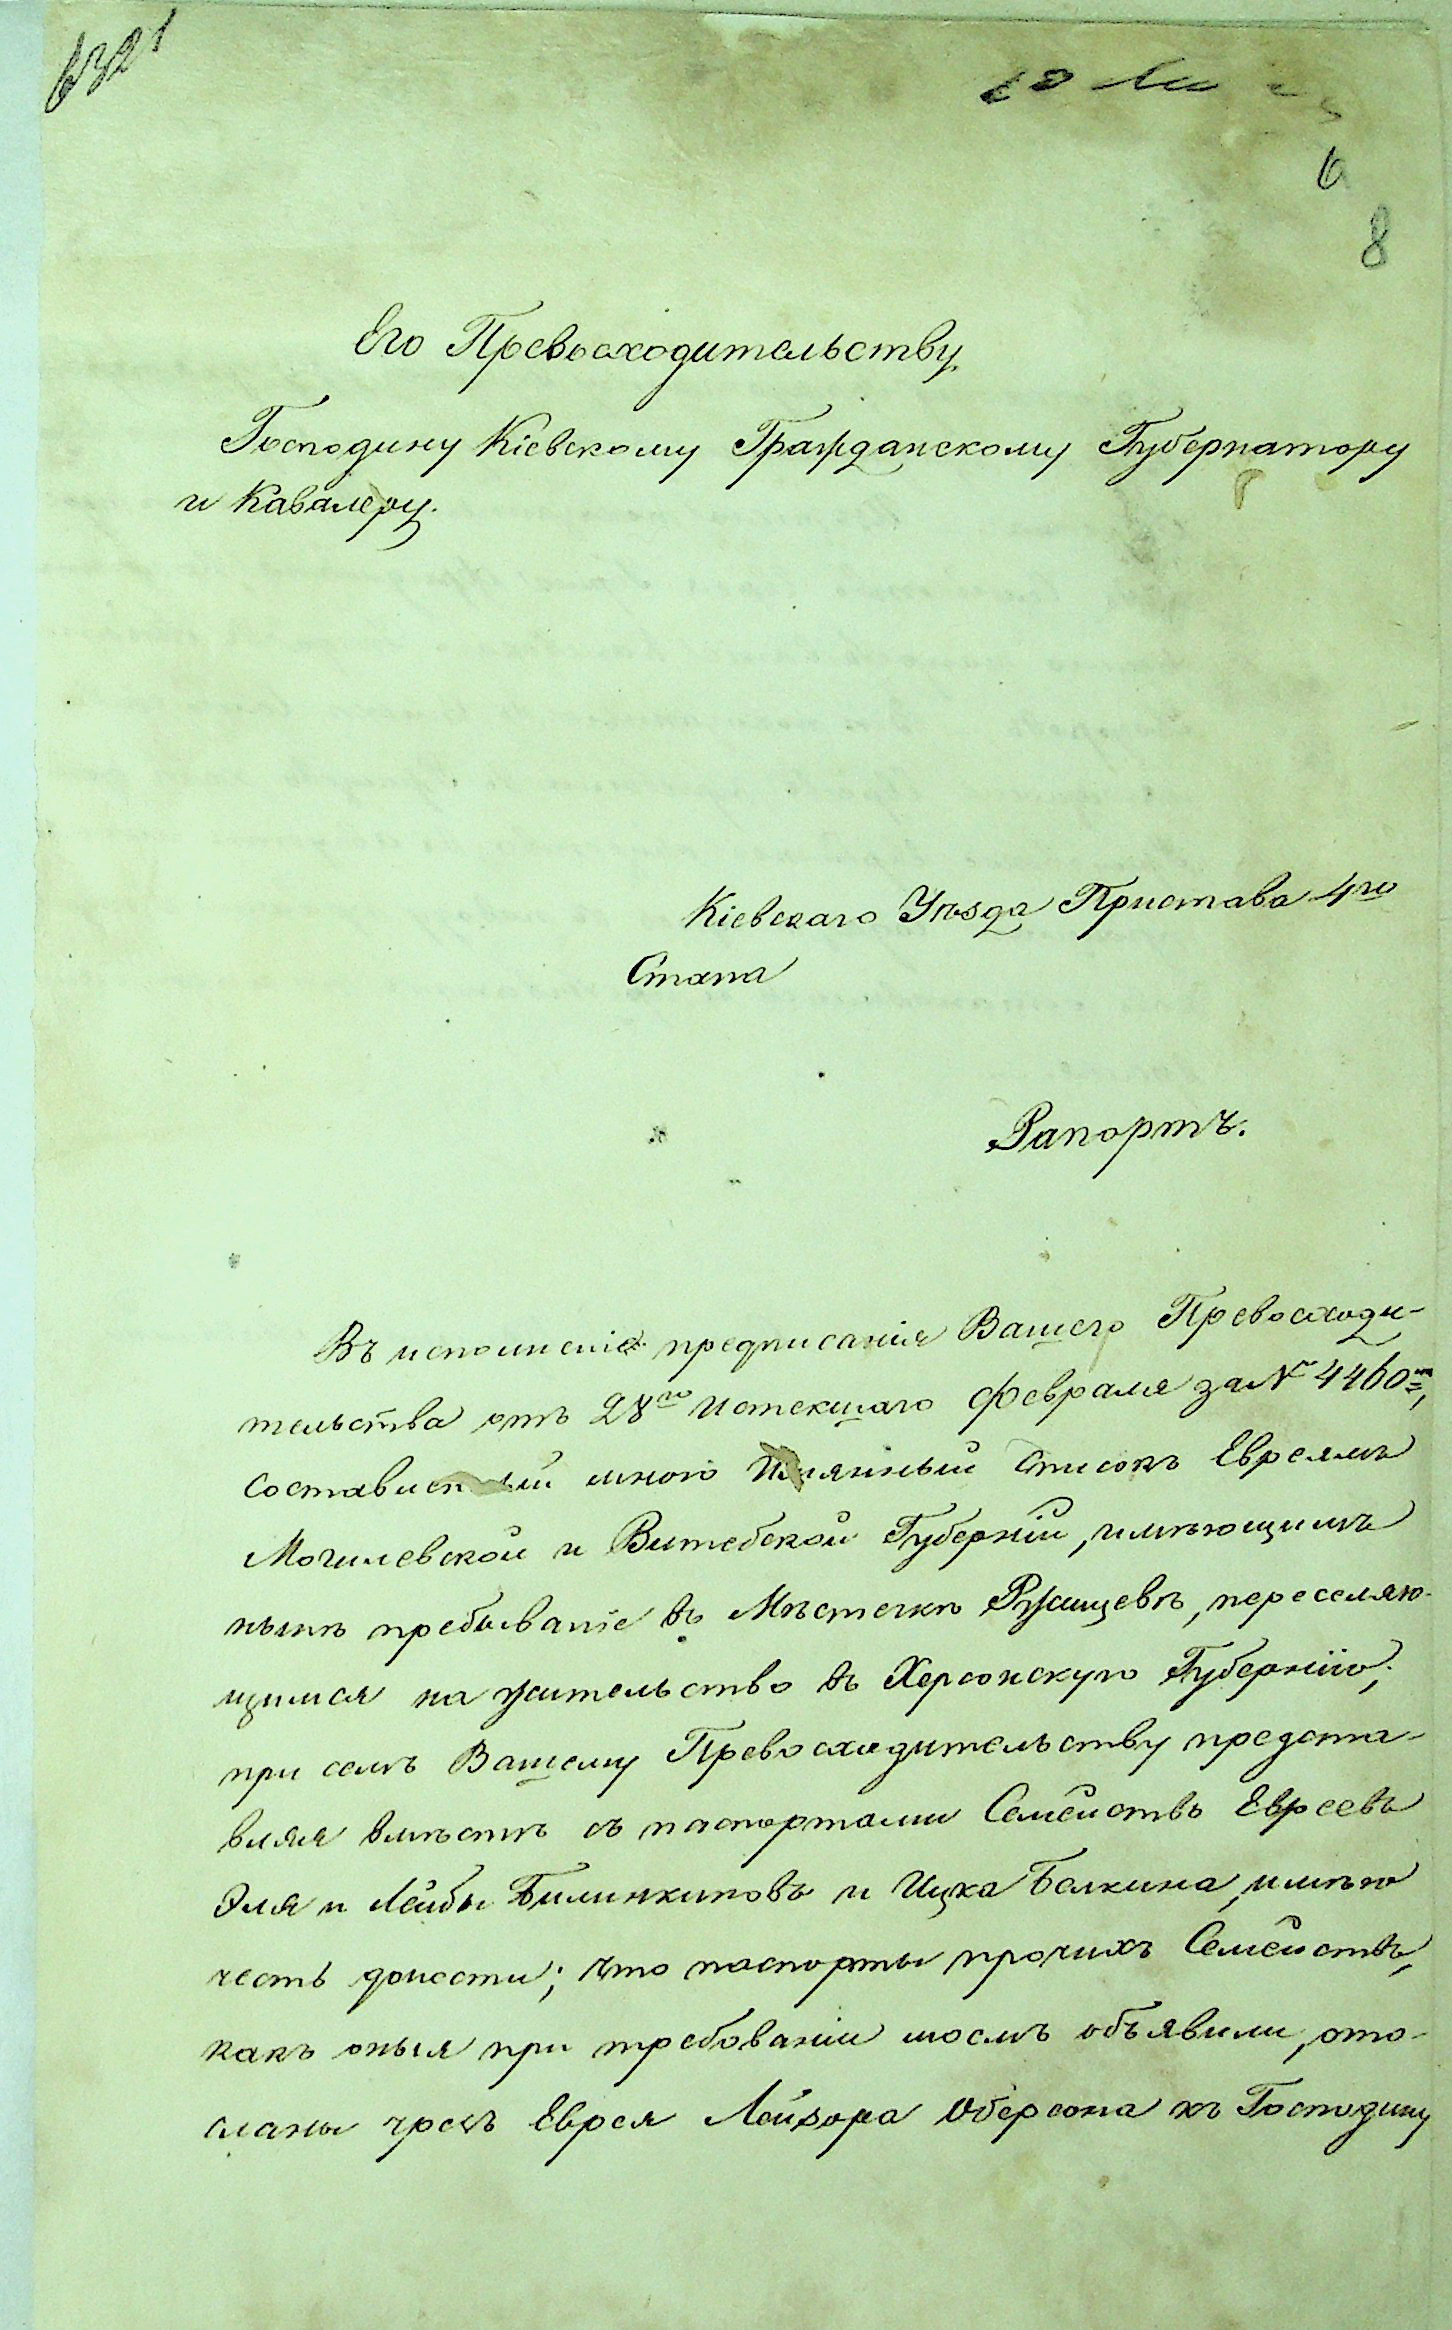 6321
6
8
Его Превосходительству
Господину Кіевскому Гражданскому Губернатору
и Кавалеру.
Кіевскаго Уѣзда Пристава 4го
Стана
Рапортъ.
Въ исполненіе предписанія Вашего Превосходи-
тельства отъ 28го истекшаго Февраля за № 4460м,
составленный мною Имянный Списокъ Евреямъ
Могилевской и Витебской Губерній, имѣющимъ
нынѣ пребываніе въ Мѣстечкѣ Ржищевѣ, переселяю-
щимся на жительство въ Херсонскую Губернію,
при семъ Вашему Превосходительству предста-
вляя вмѣстѣ съ паспортами Семействъ Евреевъ
Эля и Лейбы Билинкиновъ и Ицка Белкина, имѣю
честь донести; что паспорты прочихъ Семействъ,
какъ оныя при требованіи моемъ объявили, ото-
сланы чрезъ Еврея Лейзора Оберсона къ Господину